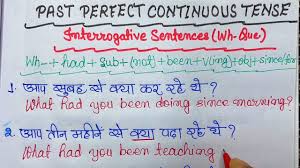 PAST PERFECT CONTINUOUS TENSE
Interrogative Sentences (Wh-Que.)
Wh-- + had + Sub + (not) + been + V(ing) + obj + since/for
1. आप सुबह से क्या कर रहे थे ?
What had you been doing since morning?
2. आप तीन महीने से क्या पढ़ा रहे थे ?
What had you been teaching